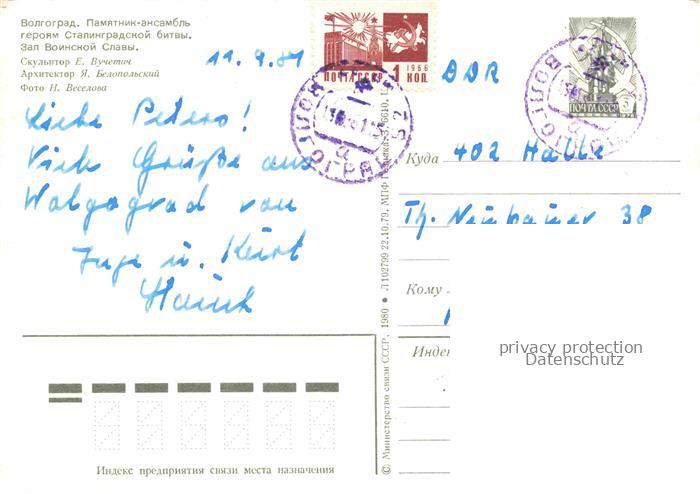 Волгоград. Памятник-ансамбль
героям Сталинградской битвы.
Зал Воинской Славы.
Скульптор Е. Вучетич
Архитектор Я. Белопольский
Фото Н. Веселова
11.9.81
ПОЧТА СССР 1 КОП.
1966
ПОЧТА СССР
ВОЛГОГРАД
Liebe Peters!
Viele Grüße aus
Wolgograd von
Inge u. Kurt
DDR
Куда 402 Halle
Th. Neubauer 38
Кому
Индек
privacy protection
Datenschutz
© Министерство связи СССР, 1980 ● Л 102799 22.10.79. МПФ
Индекс предприятия связи места назначения